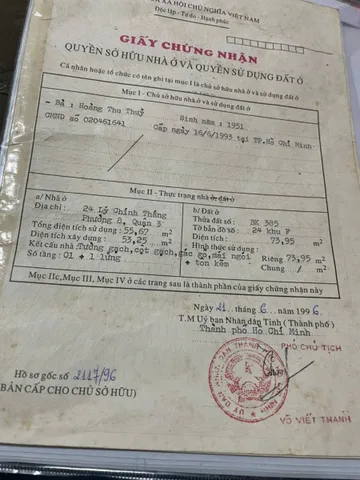 XÃ HỘI CHỦ NGHĨA VIỆT NAM
Độc lập - Tự do - Hạnh phúc
GIẤY CHỨNG NHẬN
QUYỀN SỞ HỮU NHÀ Ở VÀ QUYỀN SỬ DỤNG ĐẤT Ở
Cá nhân hoặc tổ chức có tên ghi tại mục I là chủ sở hữu nhà ở và sử dụng đất ở
Mục I - Chủ sở hữu nhà ở và sử dụng đất ở
- Bà : Hoàng Thu Thuỷ Sinh năm : 1951
CMND số 020461641 Cấp ngày 16/6/1993 tại TP.Hồ Chí Minh
Mục II - Thực trạng nhà ở, đất ở
a/ Nhà ở
Địa chỉ : 24 Lý Chính Thắng
Phường 8, Quận 3
Tổng diện tích sử dụng : 55,67 m2
Diện tích xây dựng : 53,25 m2
Kết cấu nhà : Tường gạch, cột gạch, gác gỗ, mái ngói + tôn kẽm
Số tầng : 01 + 1 lửng
b/ Đất ở
Thửa đất số : BK 385
Tờ bản đồ số : 24 khu F
Diện tích : 73,95 m2
Hình thức sử dụng :
Riêng 73,95 m2
Chung / m2
Mục IIc, Mục III, Mục IV ở các trang sau là thành phần của giấy chứng nhận này
Ngày 21 tháng 6 năm 1996
T.M Uỷ ban Nhân dân Tỉnh (Thành phố)
Thành phố Hồ Chí Minh
PHÓ CHỦ TỊCH
VÕ VIẾT THANH
Hồ sơ gốc số 2117/96
(BẢN CẤP CHO CHỦ SỞ HỮU)